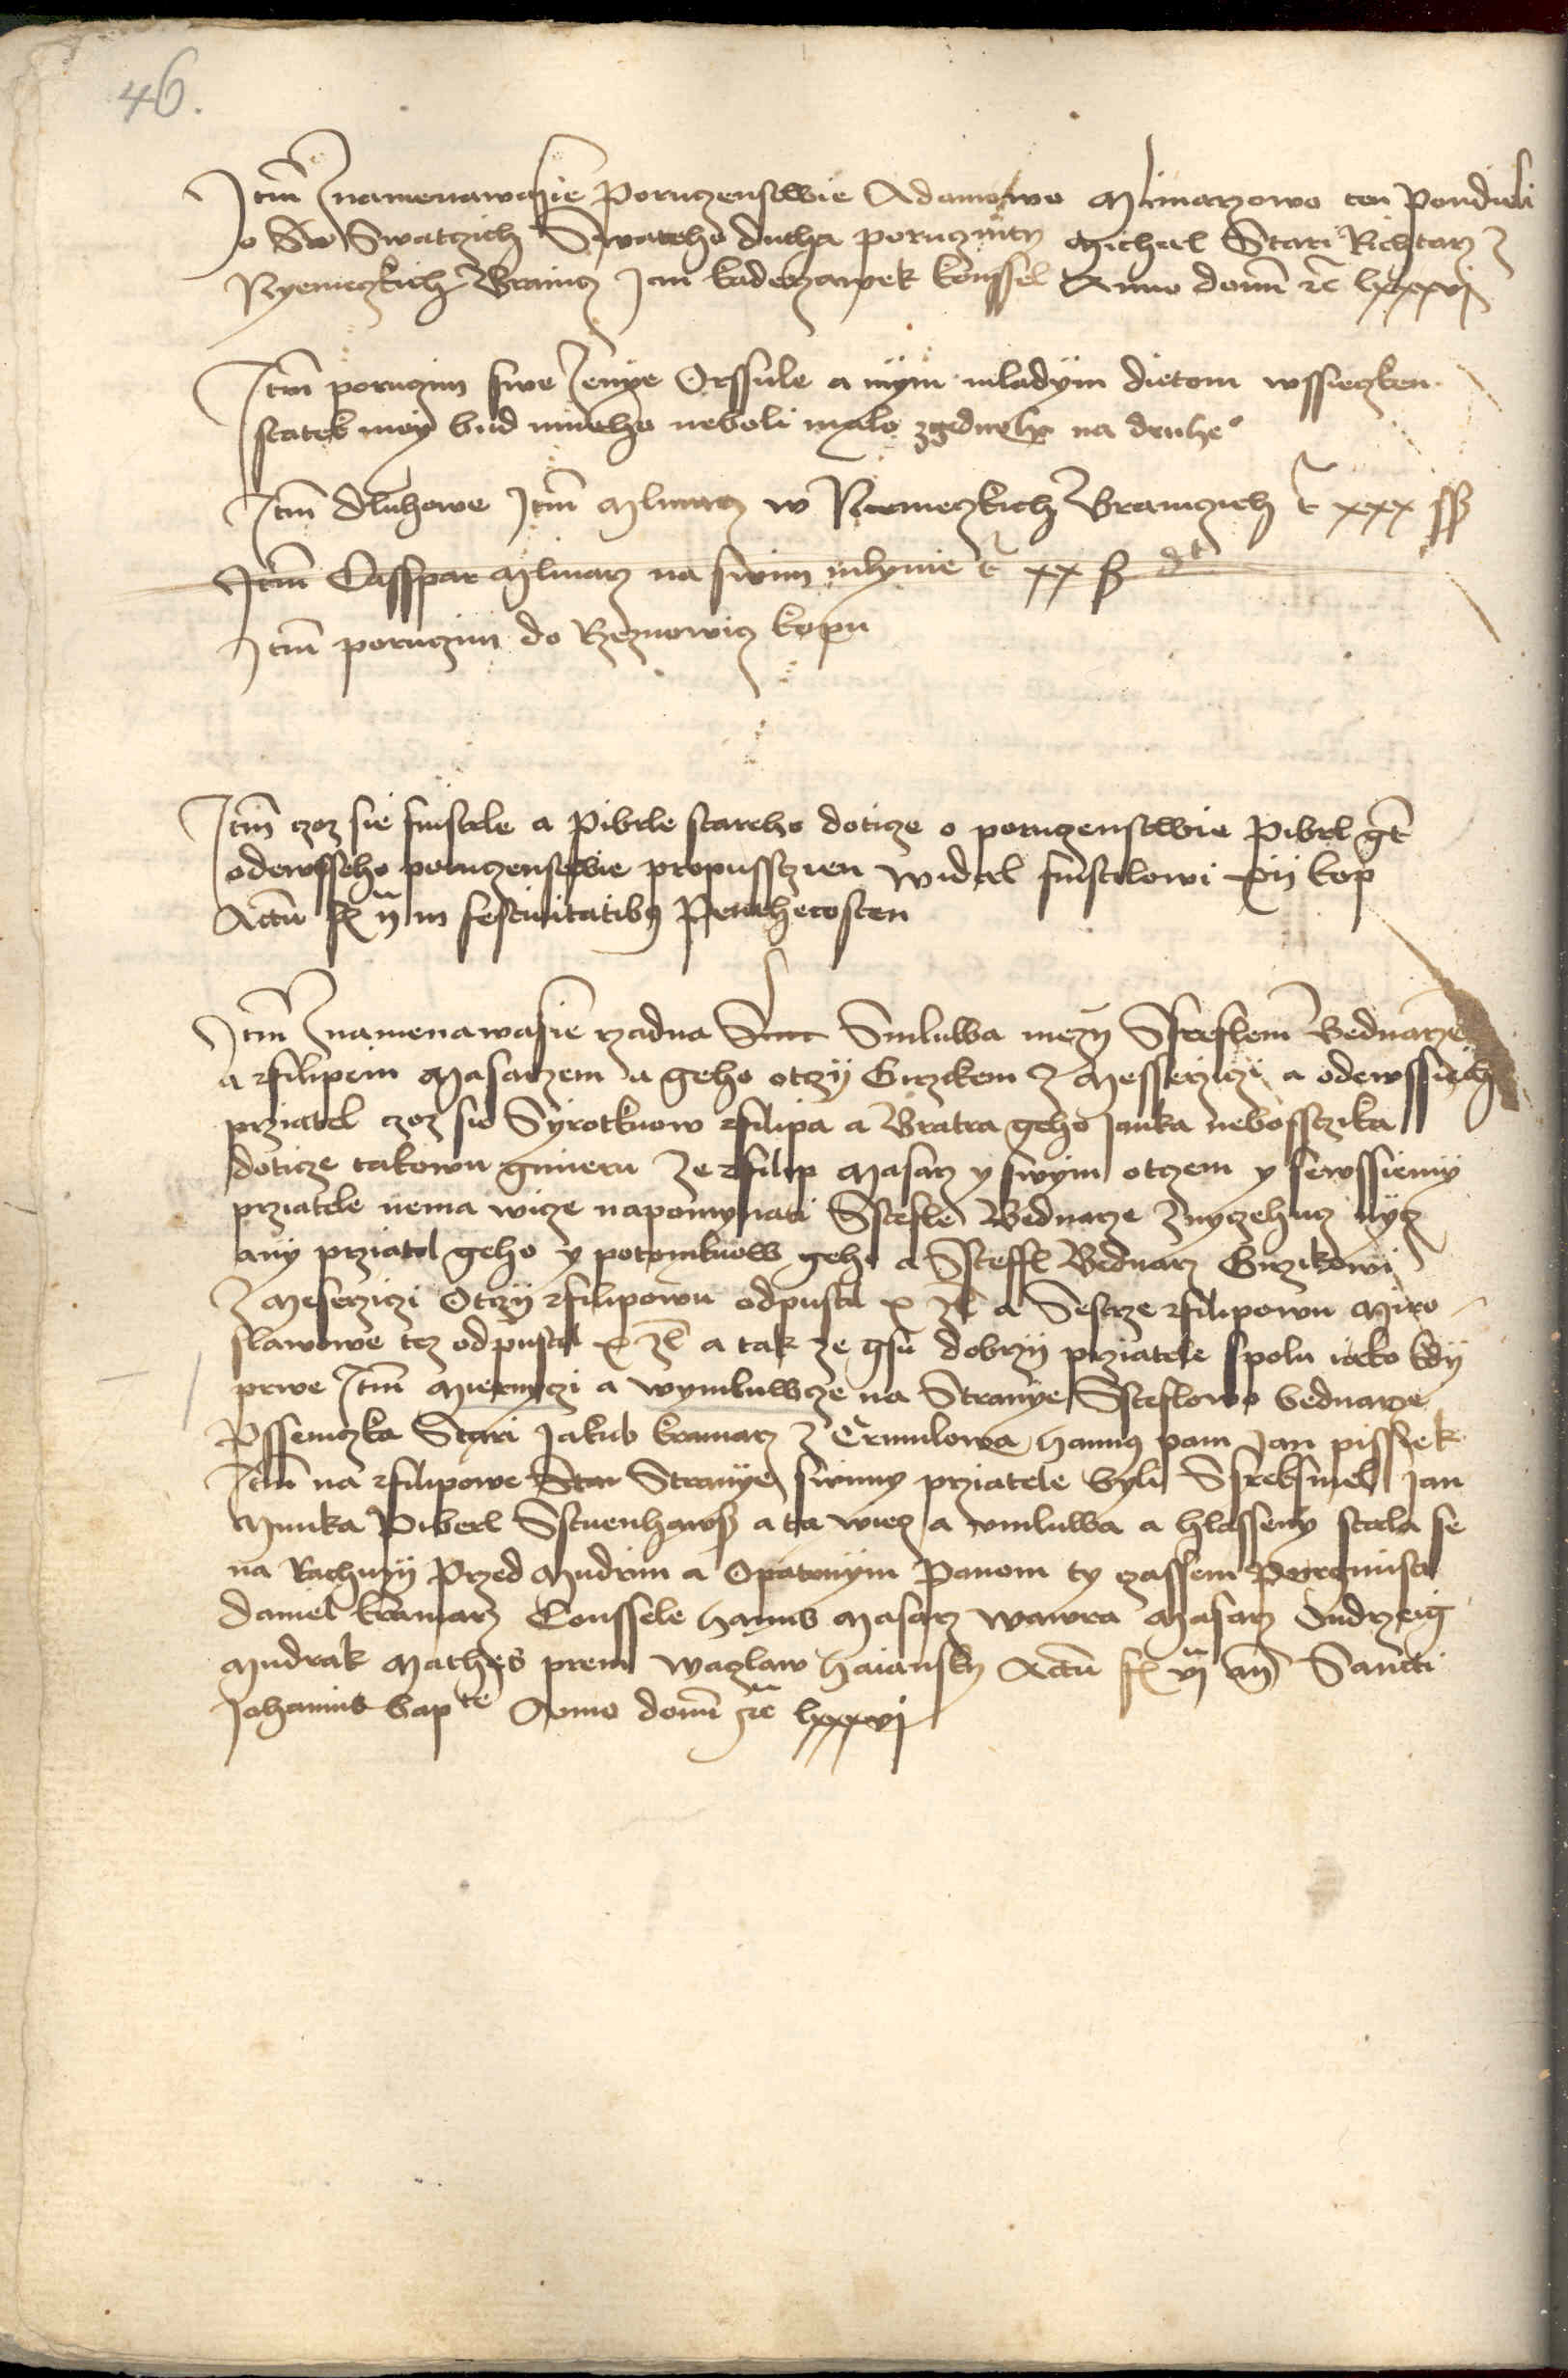 46.
Itm̄ Znamenawasie Poruczenstwie Adamowo Mlinarzowo ten Pondieli
o Sw Swatczich Swateho ducha poruczniczy Michael Stari Richtarz z
Nyemeczkich Branicz Jan kaderzawek konssel Anno domī ꝛc̄ lxxxvj
Itm̄ poruczim swe Zenye Orssule a mym mladym dietem wssieczken
statek moy bud mnoho neboli malo z gednoho na druhe°
Itm̄ dluhowe Itm̄ Mlinarz w Niemeczkich Braniczich t xxx ss
Itm̄ Casspar Mlinarz na swim mlynie t xx ss dt
Itm̄ poruczim do Rzeznowicz kopu
Itm̄ czoz sie sinstele a Pibrle stareho doticze o poruczenstwie Pibrl gt
odewsseho poruczenstwie propussczien Widal sinstelowi xij kop
Actū fr ij in festiuitatibus Penthecosten
Itm̄ Znamenawasie rzadna Smluwa mezy Ssteflem Bednarze
a Filipem Masarzem a geho otczy Girzikem z Messerziczi a odewssiech
prziatel czoz sie Syrotkuow Filipa a Bratra geho Janka nebossczika
doticze takowu gmieru Ze Filip Masarz y swym otczem y sewssiemy
prziatele nema wicze napomynati Sstefle Bednarze Znyczehuz nyz
any przatel geho y potomkuow geho a Ssteffl Bednarz Girzikowi
z Meserziczi Otczy Filipowu odpustil x zl a Sestrze Filipowu Miro
slawowe tez odpustil x zl a tak ze gsu dobrzy przatele spolu iako kdy
prwe Itm̄ Miernyczi a wymluwcze na Stranye Ssteflowo bednarze
Pssenczka Stari Jakub kramarz z Crumlowa hannus pam Jan pissiek
Itm̄ na Filipowe Stranye swinny przatele byli Ssreksmel Jan
Munka Piberl Sstuenhawss a ta wiecz a vmluwa a hlasseny stala se
na Rachuzy Przed Mudrim a Opatrnym Panom ty czassem Purgmistr
Daniel kramarz Conssele hannus Masarz Wawra Masarz Ondrzeig
Mudrak Mathes prem Waczlaw haiansky Actū fr vj an̄ Sancti
Johannis bapte Anno domī ꝛc̄ lxxxvj